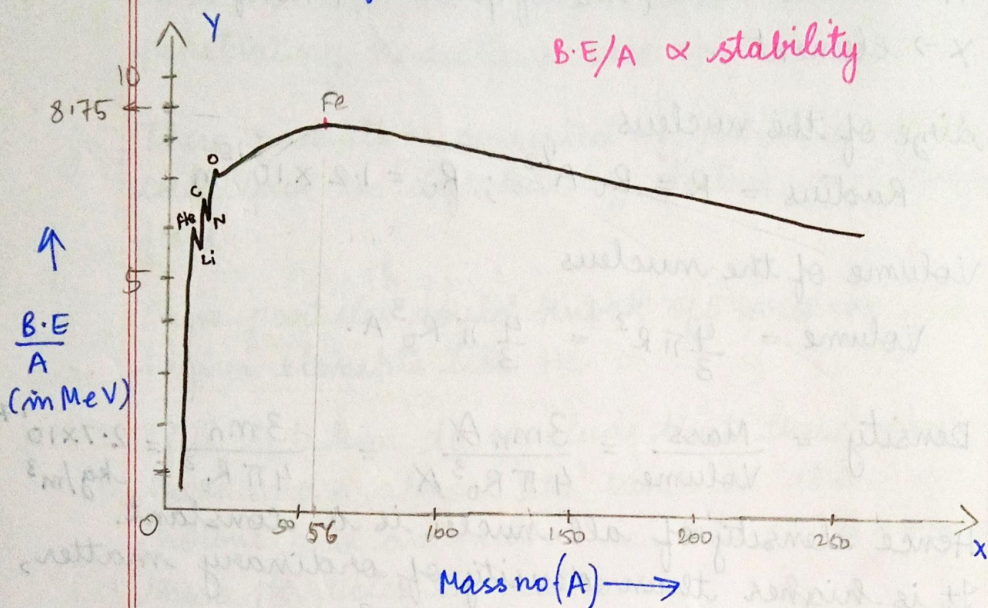 Y
B.E/A ∝ stability
10
8.75
Fe
O
C
He
N
Li
5
↑
B.E
A
(in MeV)
O
50 56 100 150 200 250
X
Mass no (A) →